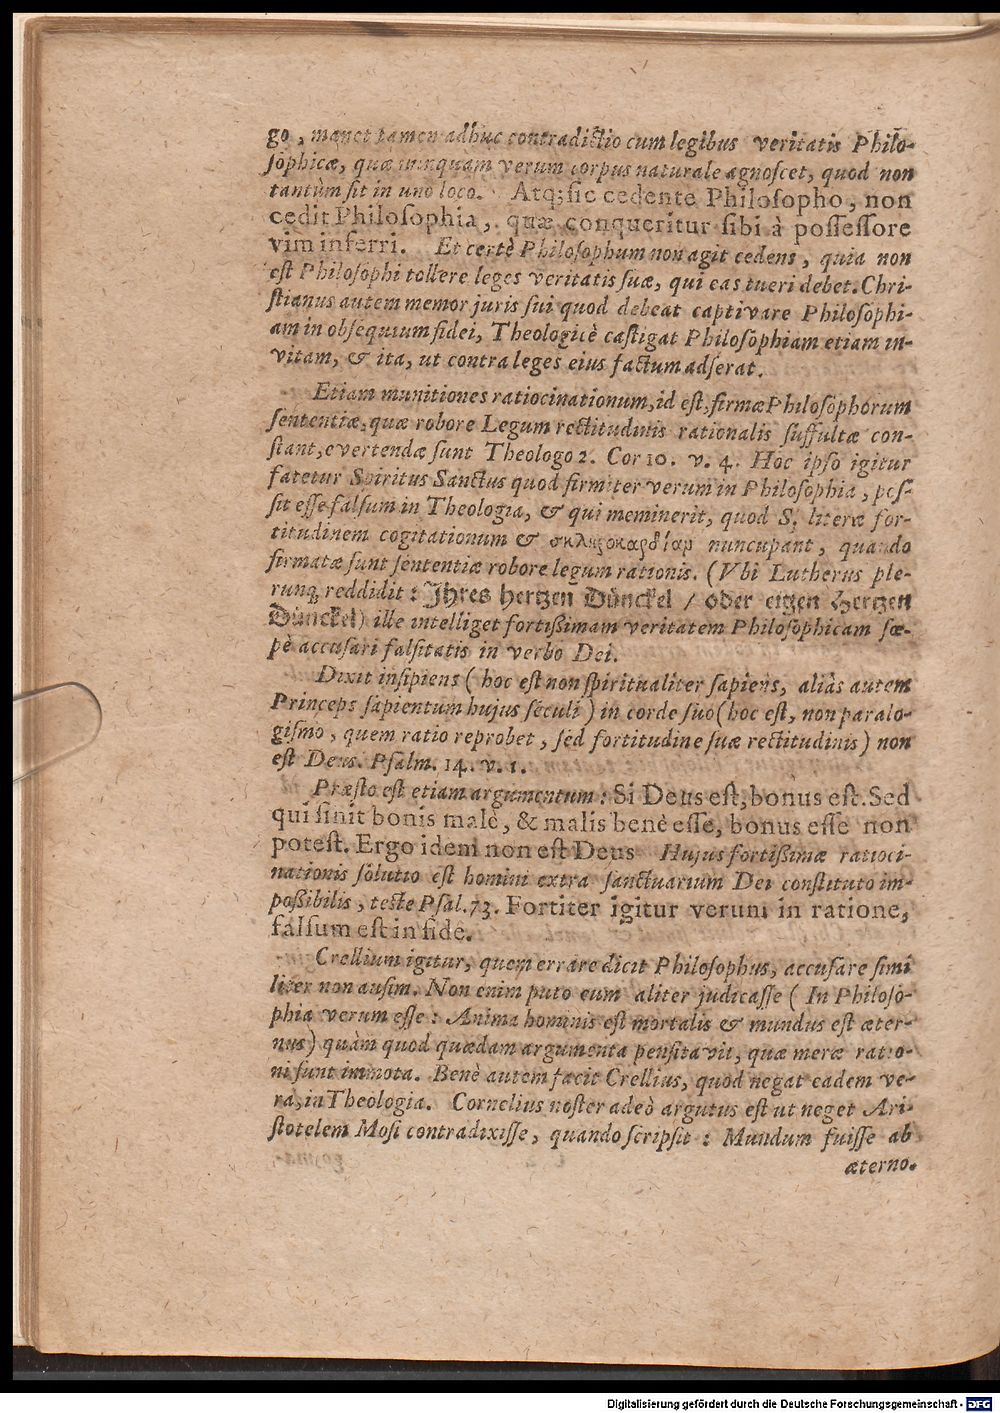 go, manet tamen adhuc contradictio cum legibus veritatis Philo-
ſophicæ, quæ nunquam verum corpus naturale agnoſcet, quod non
tantùm ſit in uno loco. Atq; ſic cedente Philoſopho, non
cedit Philoſophia, quæ conqueritur ſibi à poſſeſſore
vim inferri. Et certè Philoſophum non agit cedens, quia non
eſt Philoſophi tollere leges veritatis ſuæ, qui eas tueri debet. Chri-
ſtianus autem memor juris ſui quod debeat captivare Philoſophi-
am in obſequium fidei, Theologicè caſtigat Philoſophiam etiam in-
vitam, & ita, ut contra leges eius factum adſerat.
Etiam munitiones ratiocinationum, id eſt, firmæ Philoſophorum
ſententiæ, quæ robore Legum rectitudinis rationalis ſuffultæ con-
ſtant, evertendæ ſunt Theologo 2. Cor 10. v. 4. Hoc ipſo igitur
fatetur Spiritus Sanctus quod firmiter verum in Philoſophia, poſ-
ſit eſſe falſum in Theologia, & qui meminerit, quod S. literæ for-
titudinem cogitationum & σκληροκαρδίαμ nuncupant, quando
firmatæ ſunt ſententiæ robore legum rationis. (Vbi Lutherus ple-
runq; reddidit: Ihres hertzen Dünckel / oder eigen Hertzen
Dünckel) ille intelliget fortißimam veritatem Philoſophicam ſæ-
pè accuſari falſitatis in verbo Dei.
Dixit inſipiens (hoc eſt non ſpiritualiter ſapiens, aliàs autem
Princeps ſapientum hujus ſéculi) in corde ſuo (hoc eſt, non paralo-
giſmo, quem ratio reprobet, ſed fortitudine ſuæ rectitudinis) non
eſt Deus. Pſalm. 14. v. 1.
Præſto eſt etiam argumentum: Si Deus eſt, bonus eſt. Sed
qui ſinit bonis malè, & malis benè eſſe, bonus eſſe non
poteſt. Ergo idem non eſt Deus Hujus fortißimæ ratioci-
nationis ſolutio eſt homini extra ſanctuarium Dei conſtituto im-
poßibilis, teſte Pſal. 73. Fortiter igitur verum in ratione,
falſum eſt in fide.
Crellium igitur, quem errare dicit Philoſophus, accuſare ſimi
liter non auſim. Non enim puto eum aliter judicaſſe (In Philoſo-
phia verum eſſe: Anima hominis eſt mortalis & mundus eſt æter-
nus) quàm quod quædam argumenta penſitavit, quæ meræ ratio-
ni ſunt immota. Benè autem facit Crellius, quod negat eadem ve-
ra, in Theologia. Cornelius noſter adeò argutus eſt ut neget Ari-
ſtotelem Moſi contradixiſſe, quando ſcripſit: Mundum fuiſſe ab
æterno.
Digitalisierung gefördert durch die Deutsche Forschungsgemeinschaft - DFG